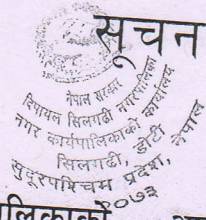 सूचन
नेपाल सरकार
दिपायल सिलगढी नगरपालिका
नगर कार्यपालिकाको कार्यालय
सिलगढी, डोटी
सुदूरपश्चिम प्रदेश, नेपाल
२०७३
ालिकाको